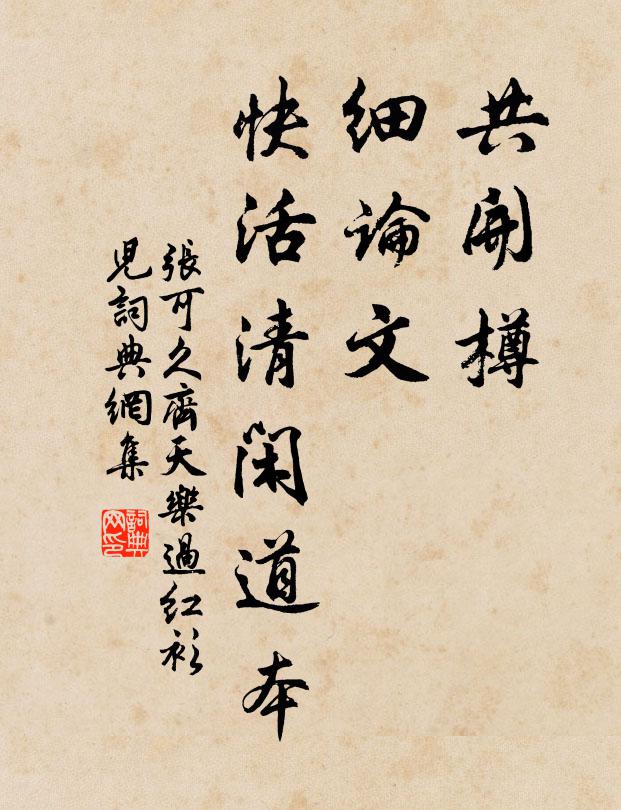 共開樽
細論文
快活清閑道本
張可久齊天樂過红衫
児詞典網集
詞典
网印